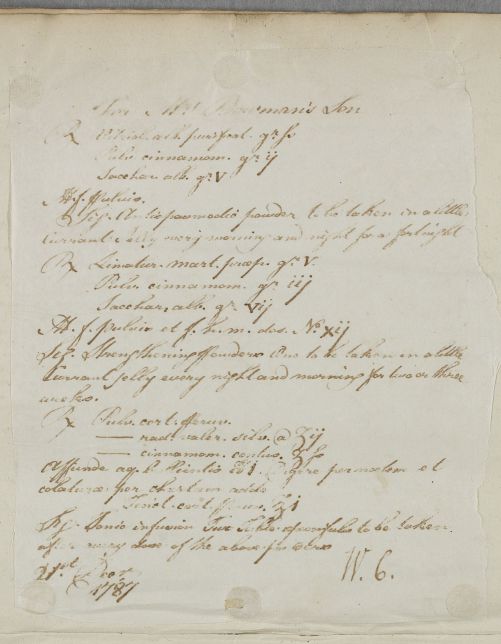 For Mr. Bowman's Son
℞ Vitriol. alb. purif. gr. ʃs
Pulv. cinnamom. gr. ij
Sacchar. alb. gr. V
M. f. Pulvis.
Sig. Antispasmodic powder to be taken in a little
Currant Jelly every morning and night for a fortnight
℞ Limatur. mart. præp. gr. V.
Pulv. cinnamom. gr. iij
Sacchar. alb. gr. vij
M. f. pulvis et f. h. m. dos. No. xij
Sig. Strengthening Powders One to be taken in a little
Currant Jelly every night and morning for two or three
weeks.
℞ Pulv. cort. peruv.
— rad. valer. silv. a ʒij
— cinnamom. contus. ʒʃs
Affunde aq. b. ℔i Digere per noctem et
colaturæ per chartam adde
Tinct. cort. peruv. ℥i
Sig. Tonic infusion Two Table spoonfuls to be taken
after every dose of the above powders
21st. Decr.
1787 W. C.